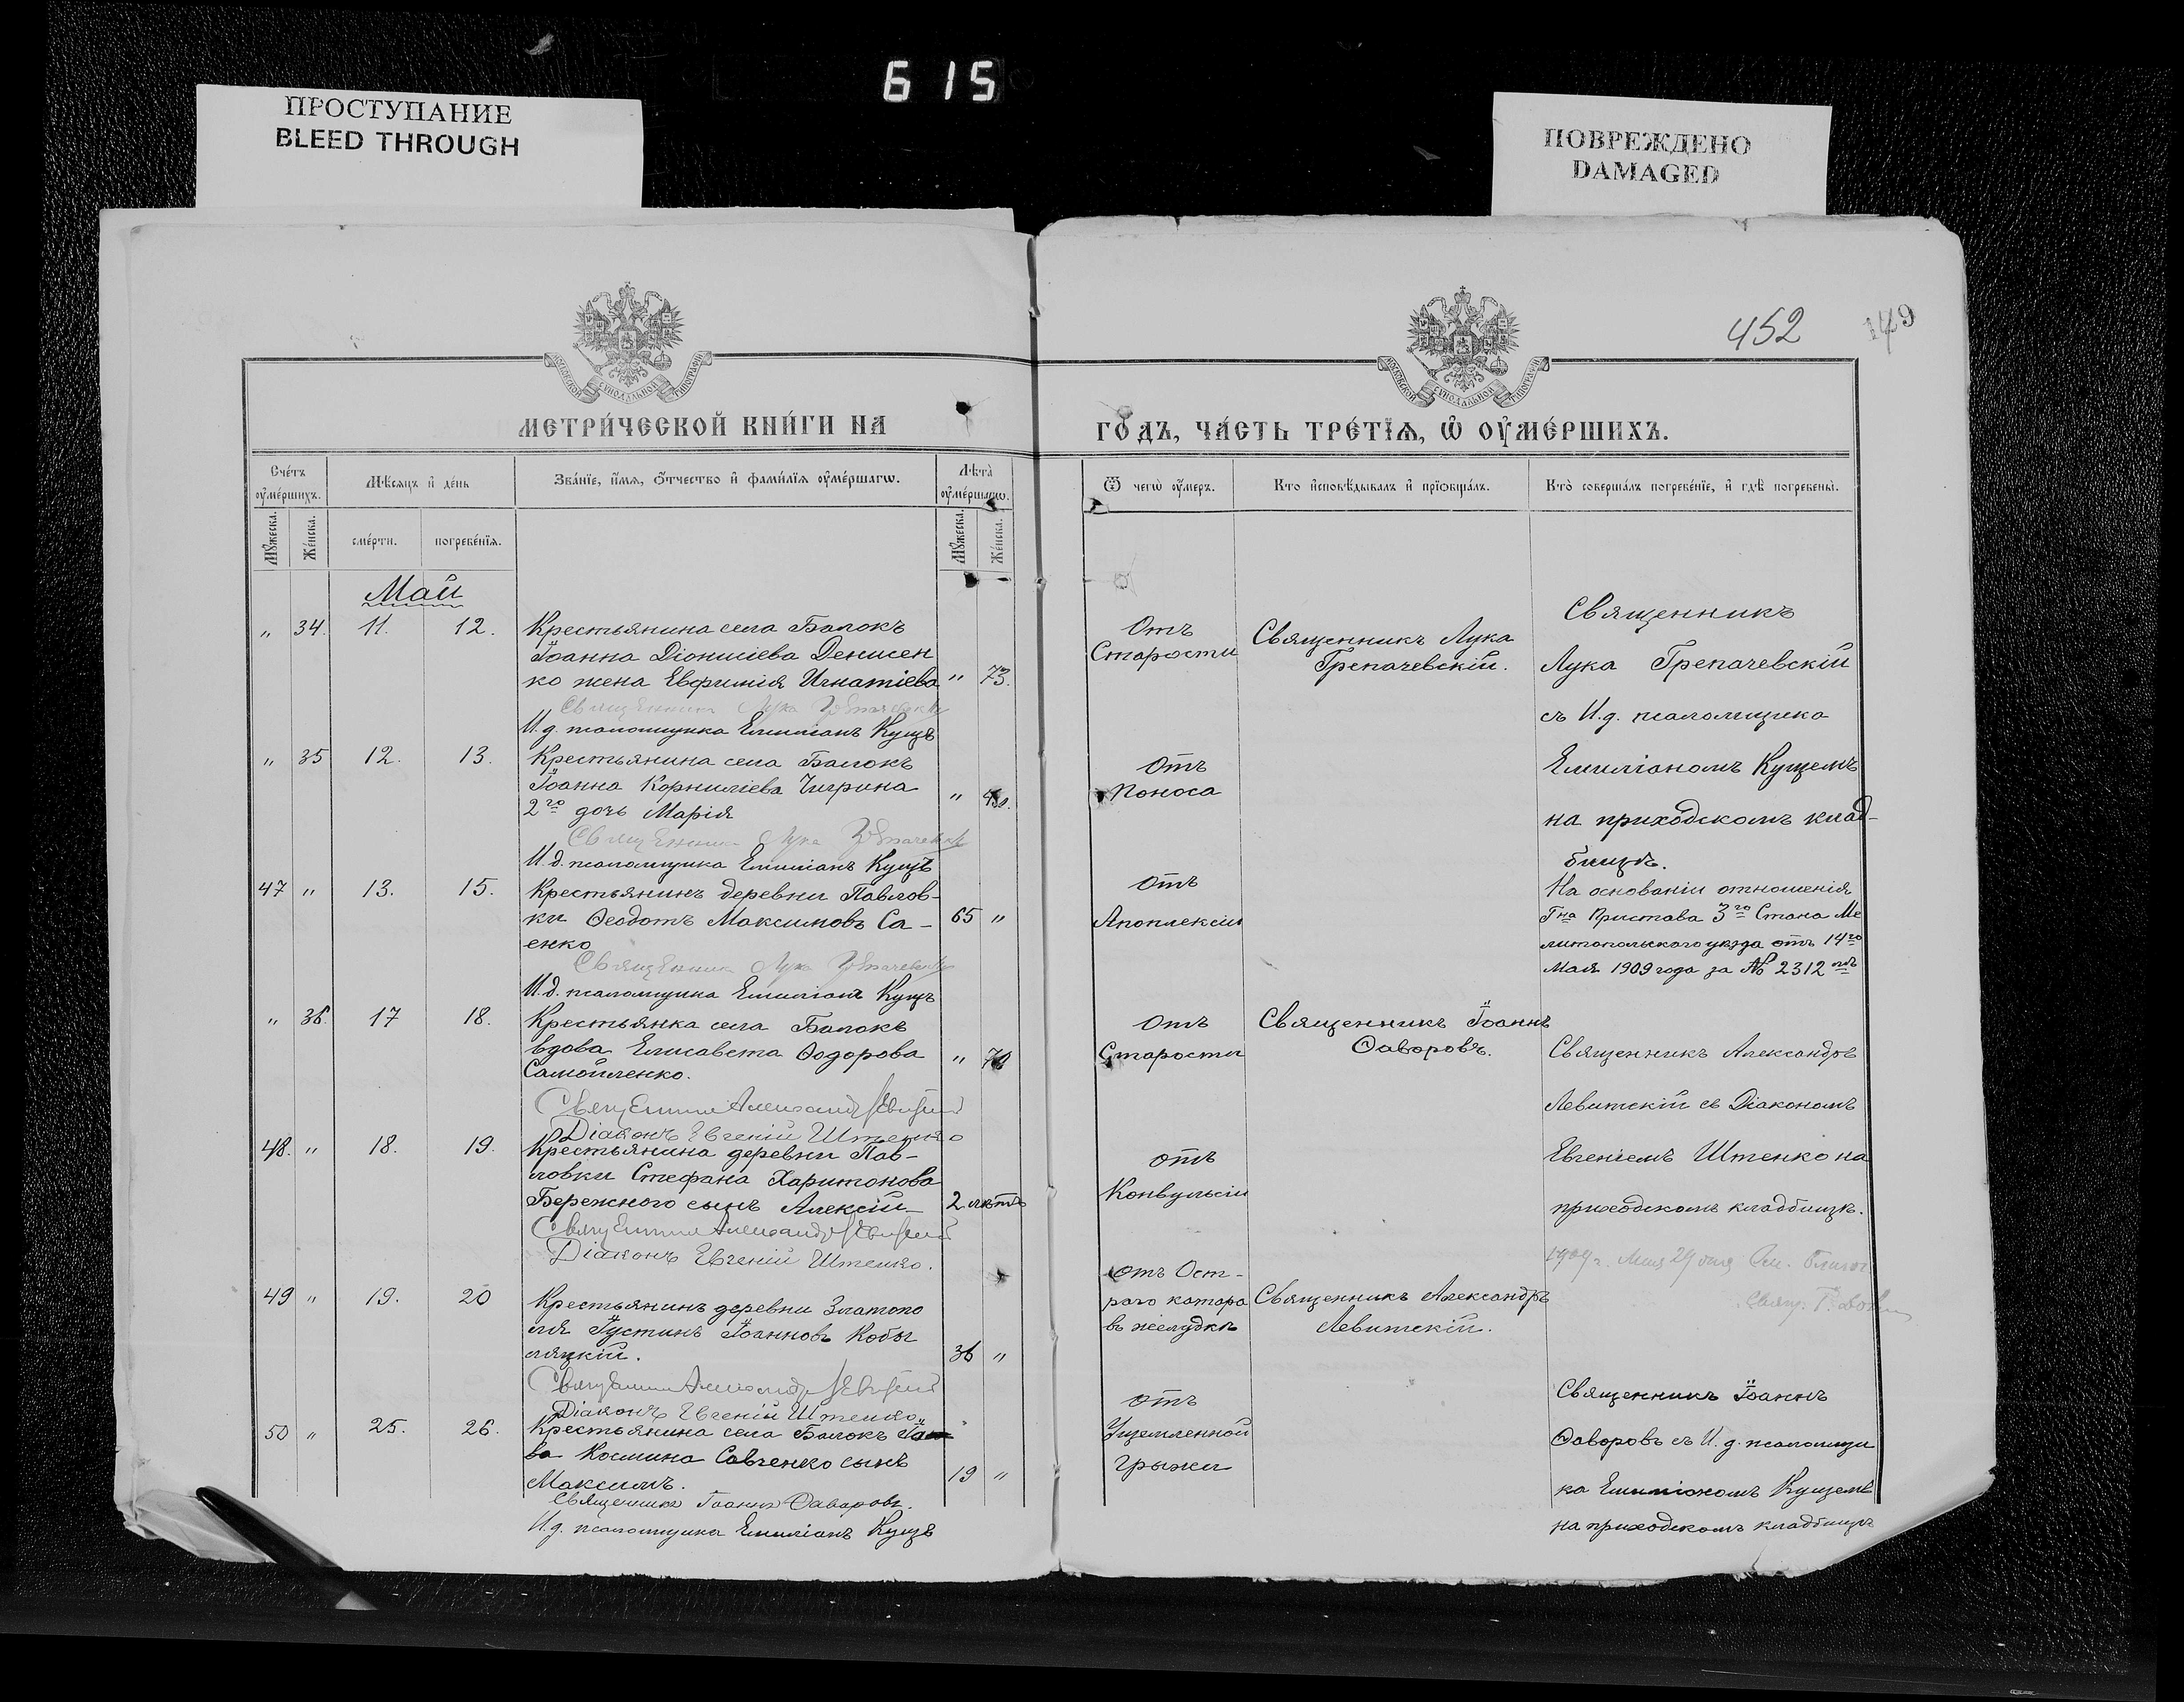 6 15
ПРОСТУПАНИЕ
BLEED THROUGH
ПОВРЕЖДЕНО
DAMAGED
452
149
МОСКОВСКОЙ СѴНОДАЛЬНОЙ ТИПОГРАФІИ
МОСКОВСКОЙ СѴНОДАЛЬНОЙ ТИПОГРАФІИ
МЕТРИ́ЧЕСКОЙ КНИ́ГИ НА
ГОДЪ, ЧА́СТЬ ТРЕ́ТЇѦ, Ѡ ОУМЕ́РШИХЪ.
Сче́тъ оуме́ршихъ.
Мѣсяцъ и де́нь
Зва́нїе, и́мя, ѻ́тчество и фами́лїя оуме́ршагѡ.
Лѣта̀ оуме́ршагѡ.
Ѿ чегѡ̀ оу́меръ.
Кто̀ исповѣ́дывалъ и прїѡбща́лъ.
Кто̀ соверша́лъ погребе́нїе, и гдѣ̀ погребены̀.
Мꙋ́жеска.
Же́нска.
сме́рти.
погребе́нїя.
Мꙋ́жеска.
Же́нска.
Май
" 34. 11. 12. Крестьянина села Балокъ
Іоанна Діонисіева Денисен
ко жена Евфимія Игнатіева " 73.
Священникъ Лука Грепачевскій
И.д. псаломщика Емиліанъ Кущъ
Отъ
Старости
Священникъ Лука
Грепачевскій.
Священникъ
Лука Грепачевскій
съ И.д. псаломщика
Емиліаномъ Кущемъ
на приходскомъ клад-
бищѣ.
" 35 12. 13. Крестьянина села Балокъ
Іоанна Корниліева Чигрина "
2го дочь Марія
Священникъ Лука Грепачевскій
И.д. псаломщика Емиліанъ Кущъ
Отъ
Поноса
47 " 13. 15. Крестьянинъ деревни Павлов-
ки Ѳеодотъ Максимовъ Са- 65 "
енко
Священникъ Лука Грепачевскій
И.д. псаломщика Емиліанъ Кущъ
Отъ
Апоплексіи
На основаніи отношенія
Гна Пристава 3го Стана Ме
литопольскаго уѣзда отъ 14го
Мая 1909 года за № 2312
" 36. 17 18. Крестьянка села Балокъ
вдова Елисавета Ѳодорова " 70
Самойленко.
Священникъ Александръ Левитскій
Діаконъ Евгеній Штенко
Отъ
Старости
Священникъ Іоаннъ
Ѳаворовъ.
Священникъ Александръ
Левитскій съ Діакономъ
Евгеніемъ Штенко на
приходскомъ кладбищѣ.
48. " 18. 19. Крестьянина деревни Пав-
ловки Стефана Харитонова
Бережного сынъ Алексій 2 лѣтъ
Священникъ Александръ Левитскій
Діаконъ Евгеній Штенко.
отъ
Конвульсіи
1909 г. Мая 29 дня
49 " 19. 20 Крестьянинъ деревни Златопо
ля Іустинъ Іоанновъ Кобы
ляцкій. 36 "
Священникъ Александръ Левитскій
Діаконъ Евгеній Штенко
отъ Ост-
раго катара
въ желудкѣ
Священникъ Александръ
Левитскій.
50 " 25. 26. Крестьянина села Балокъ
ва Космина Савченко сынъ 19 "
Максимъ.
Священникъ Іоаннъ Ѳаворовъ.
И.д. псаломщика Емиліанъ Кущъ
отъ
Ущемленной
грыжи
Священникъ Іоаннъ
Ѳаворовъ съ И.д. псаломщи
ка Емиліаномъ Кущемъ
на приходскомъ кладбищѣ